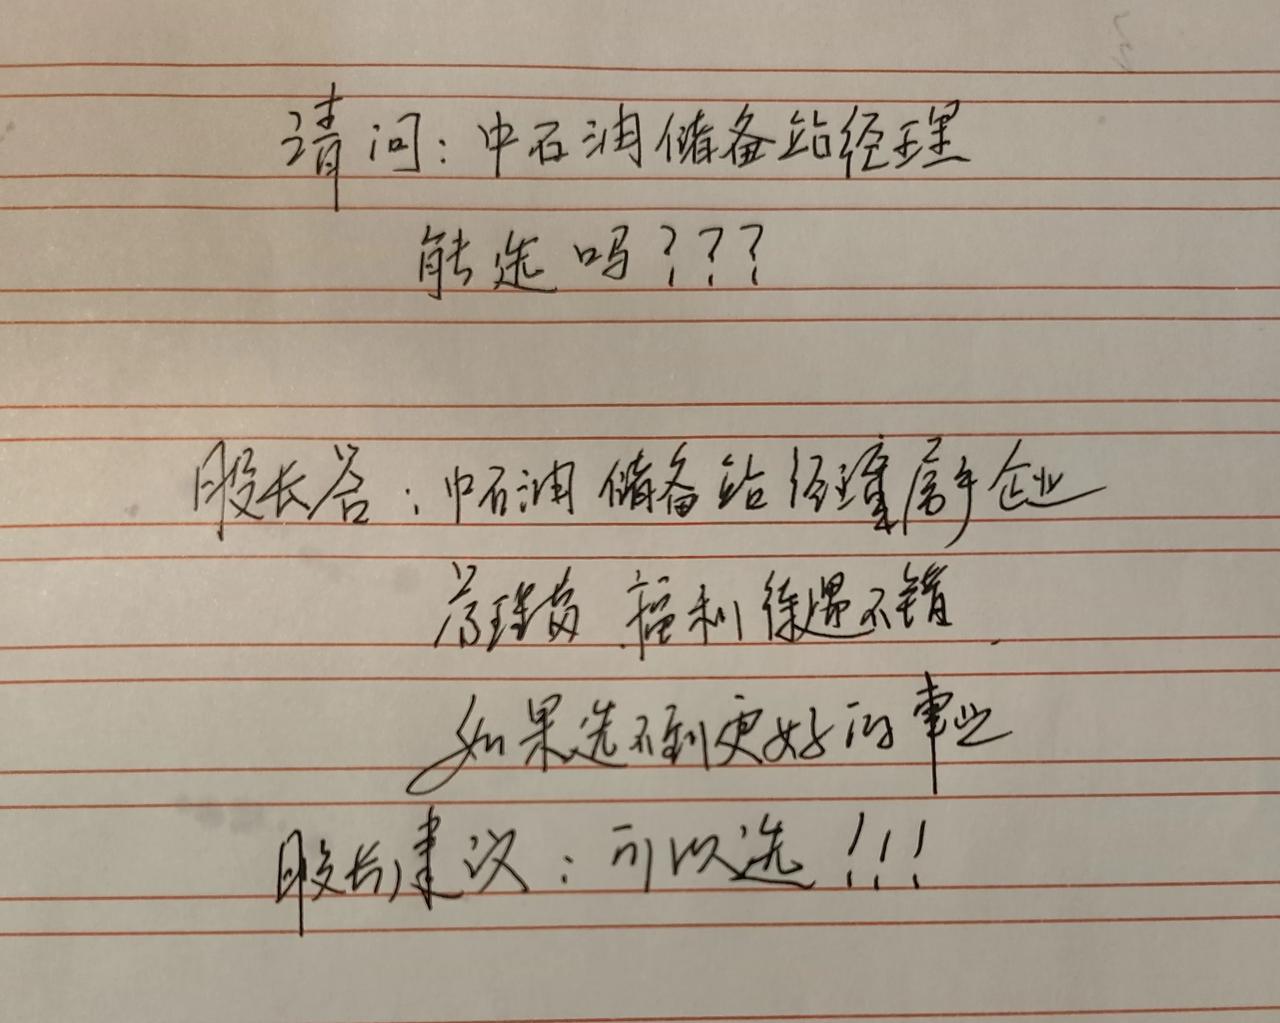 请问：中石油储备站经理
能选吗？？？
股长答：中石油储备站经理属于企业
管理岗 福利待遇不错.
如果选不到更好的事业
股长建议：可以选！！！